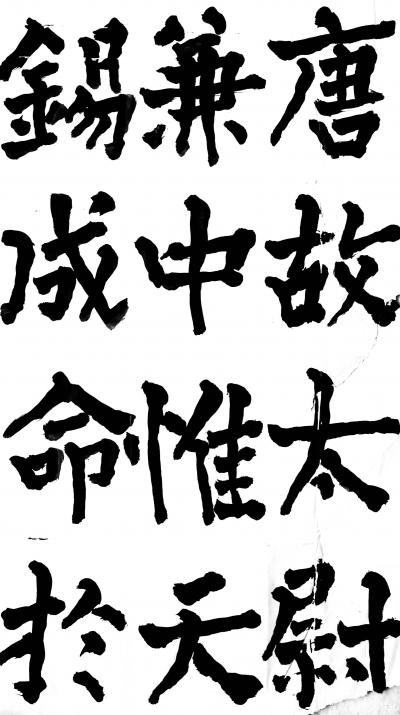 唐故太尉
兼中惟天
錫成命於